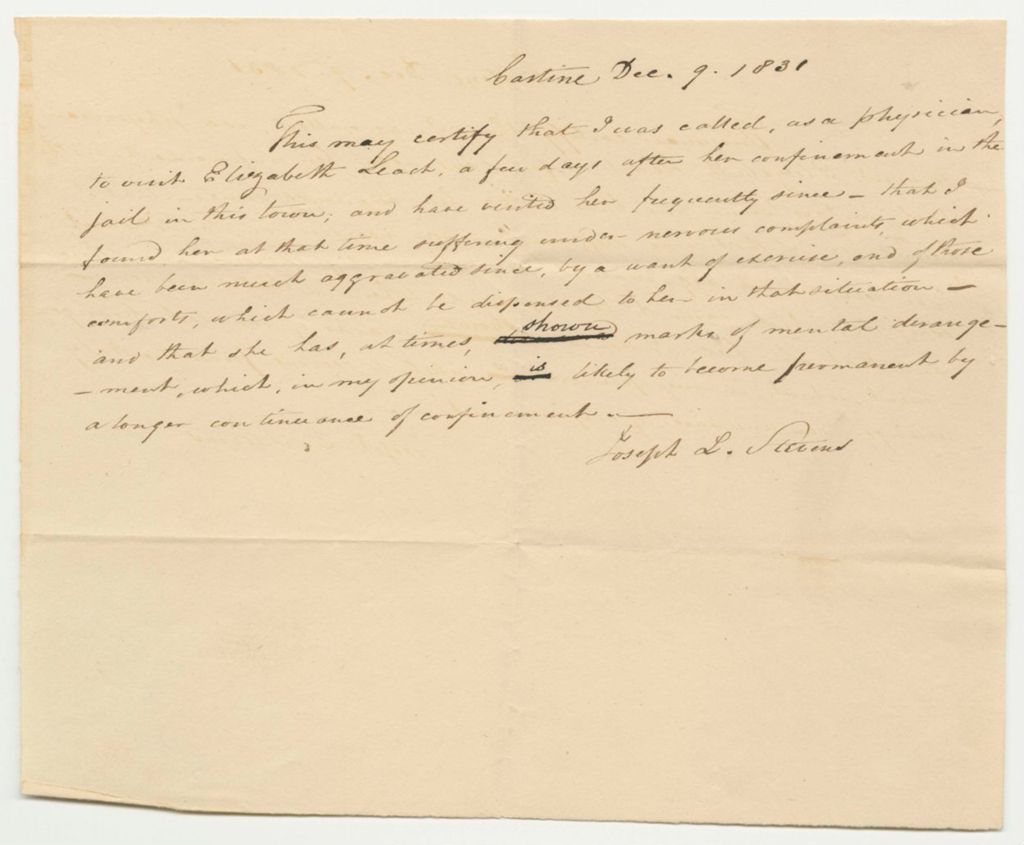 Castine Dec. 9. 1831
This may certify that I was called, as a physician,
to visit Elizabeth Leach, a few days after her confinement in the
jail in this town; and have visited her frequently since – that I
found her at that time suffering under nervous complaints, which
have been much aggravated since, by a want of exercise, and of those
comforts, which cannot be dispensed to her in that situation –
and that she has, at times, shown marks of mental derange-
-ment, which, in my opinion, is likely to become permanent by
a longer continuance of confinement. –
Joseph L. Stevens